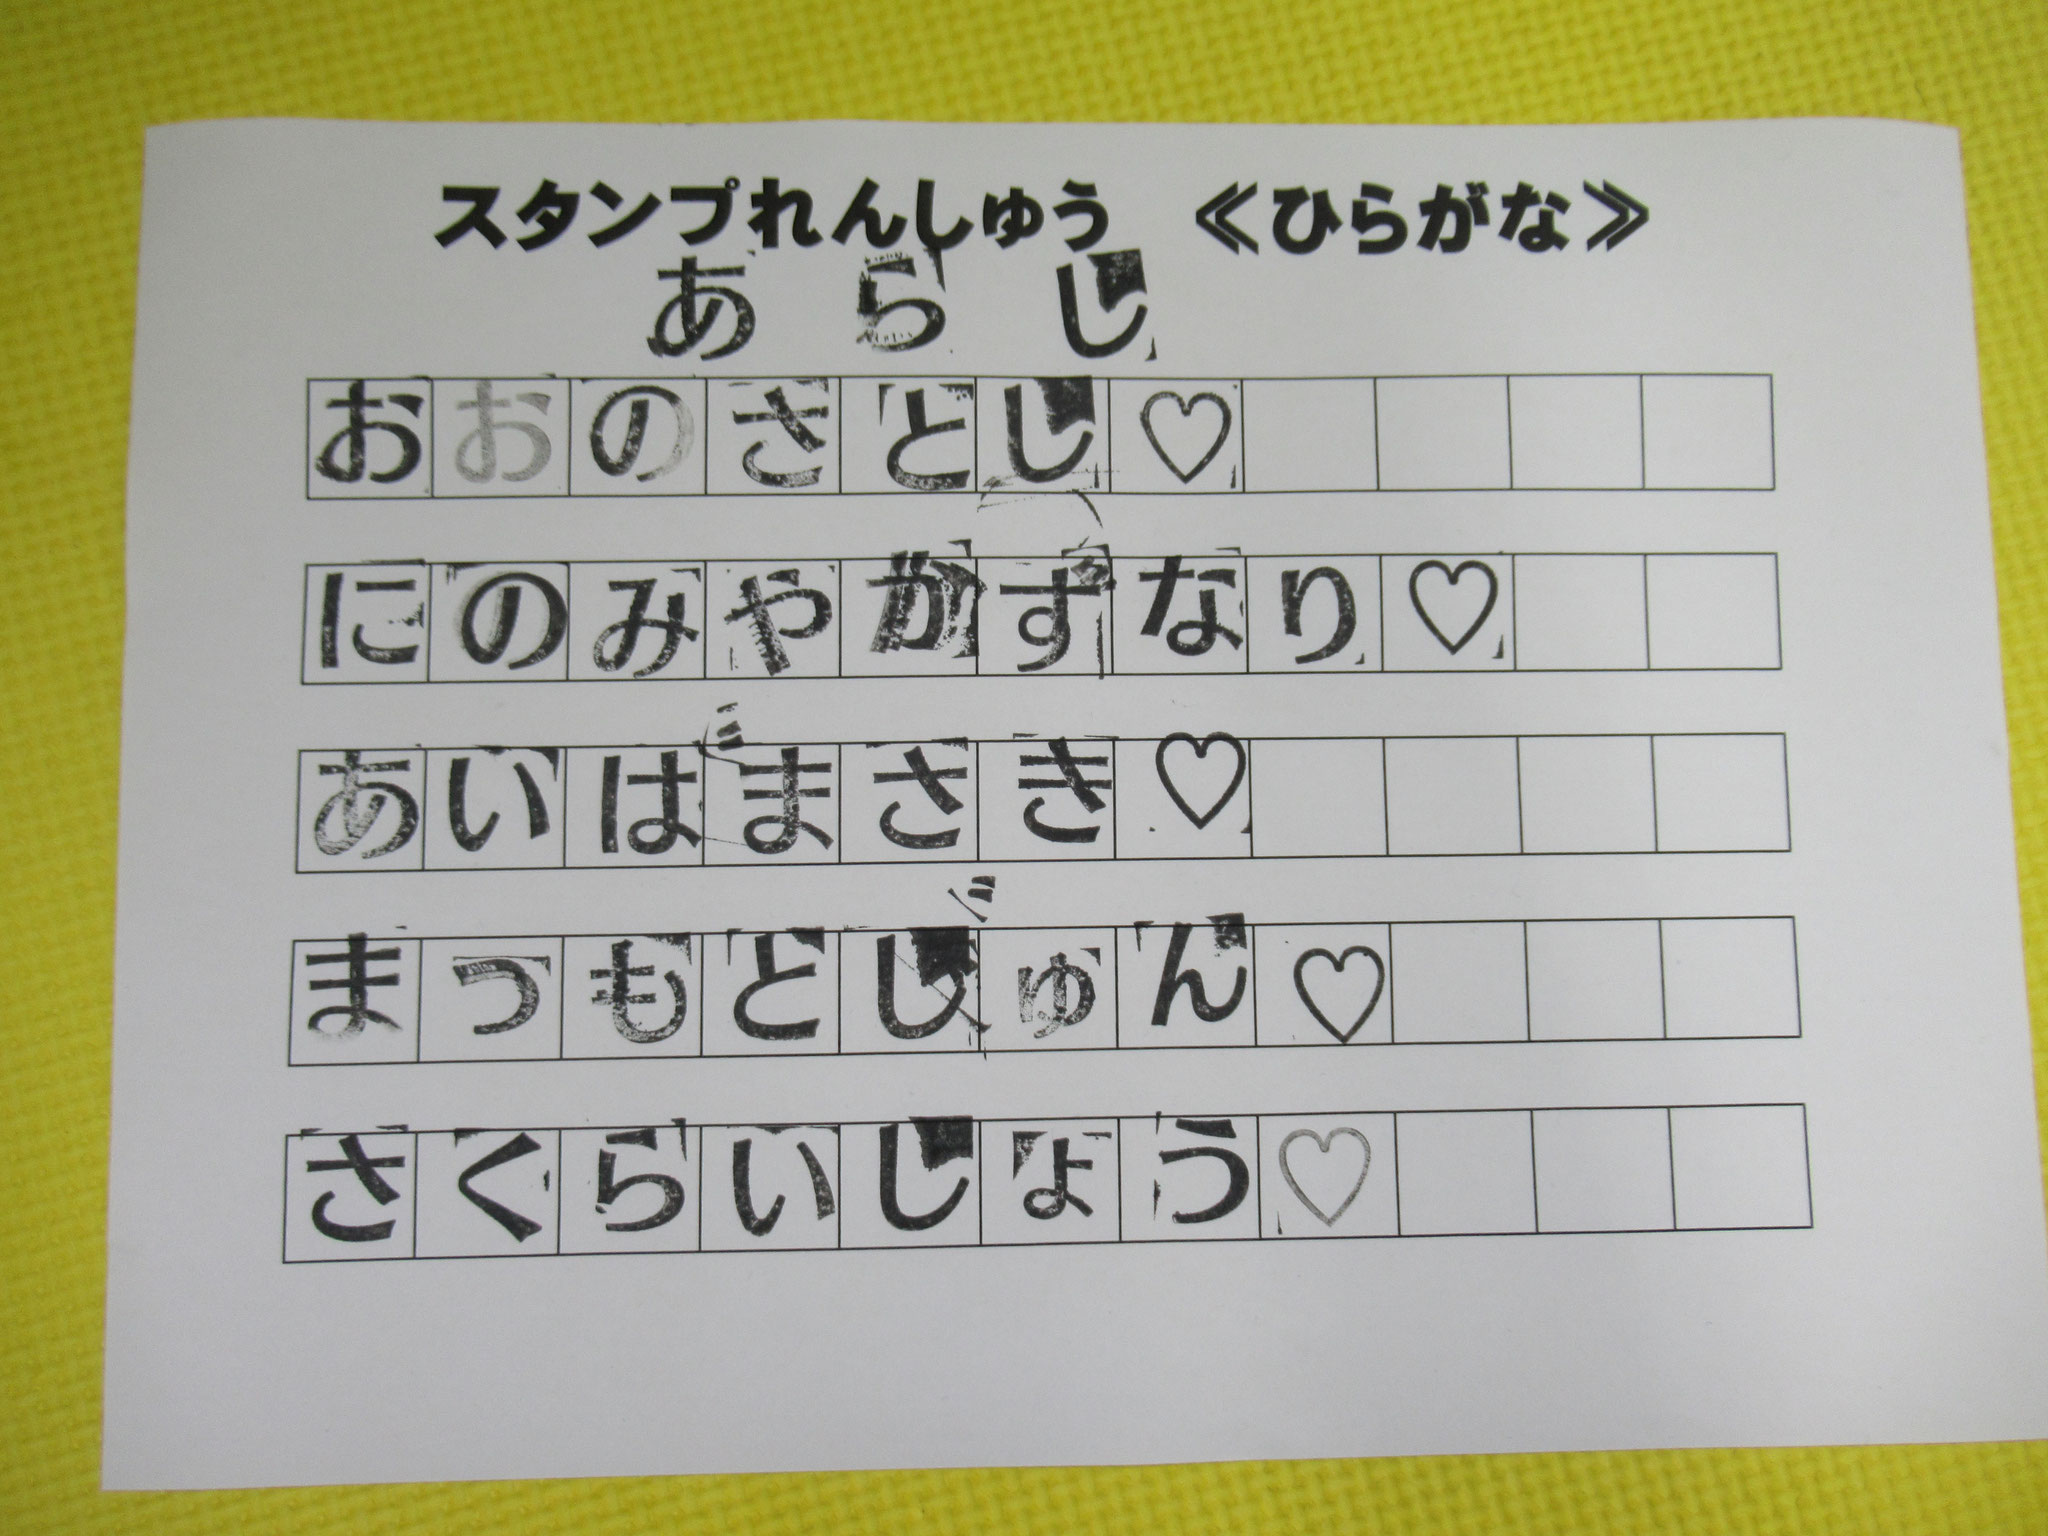 スタンプれんしゅう 《ひらがな》
あらし
おおのさとし♡
にのみやかずなり♡
あいばまさき♡
まつもとじゅん♡
さくらいしょう♡